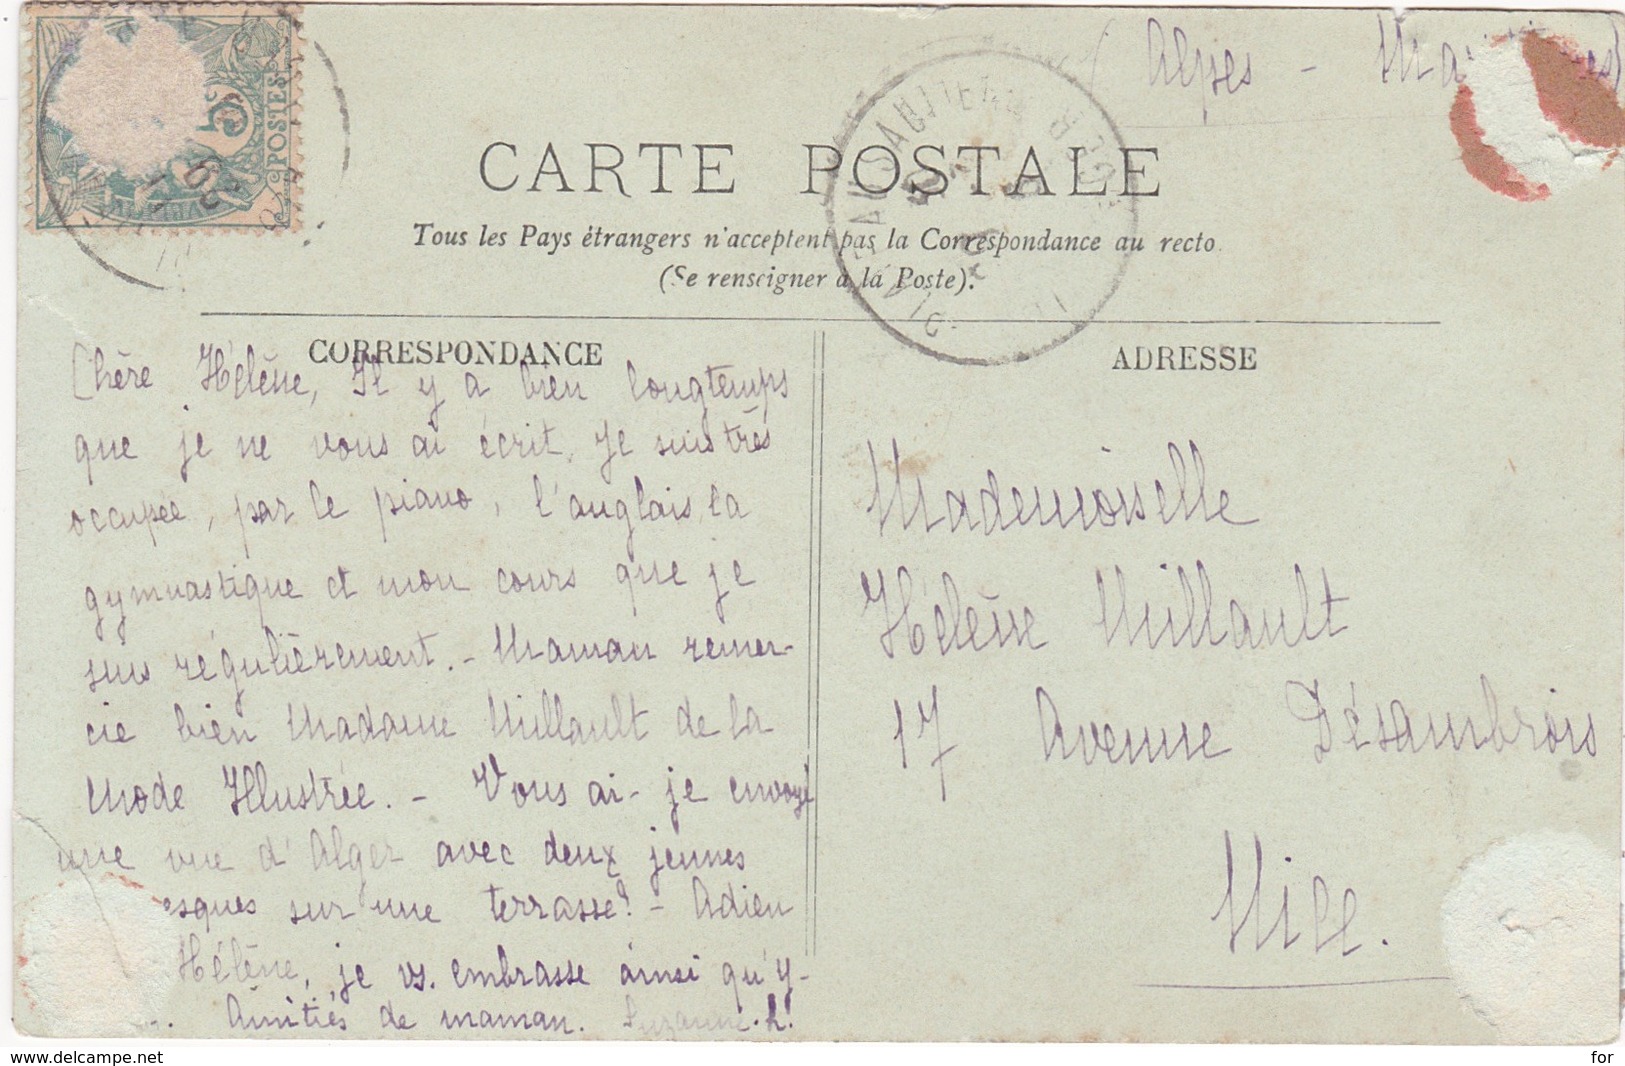 (Alpes - Ma
CARTE POSTALE
Tous les Pays étrangers n'acceptent pas la Correspondance au recto
(Se renseigner à la Poste).
5c
POSTES
CORRESPONDANCE
Chère Hélène, Il y a bien longtemps
que je ne vous ai écrit. Je suis très
occupée, par le piano, l'anglais, la
gymnastique et mon cours que je
suis régulièrement. - Maman remer-
cie bien Madame Millault de la
Mode Illustrée. - Vous ai-je envoyé
une vue d'Alger avec deux jeunes
esques sur une terrasse? - Adieu
Hélène, je vs. embrasse ainsi qu'y-
Amitiés de maman. Suzanne. h.
ADRESSE
Mademoiselle
Hélène Millault
17 Avenue Désambrois
Nice.
delcampe.net
for